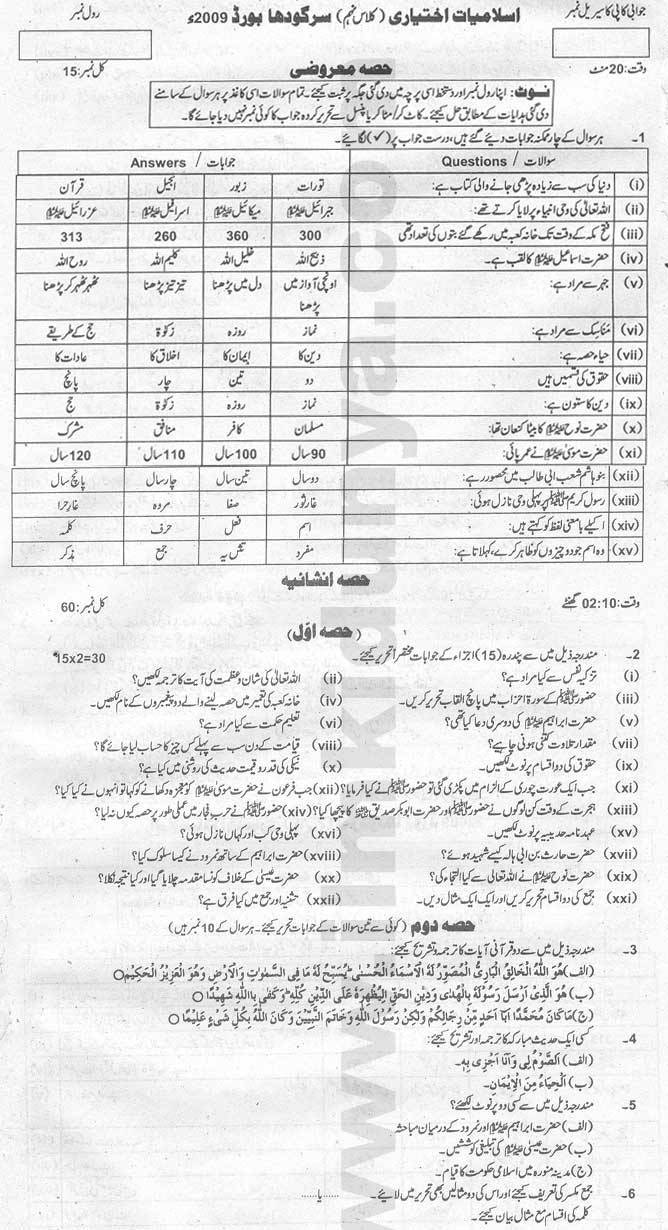 جوابی کاپی کا سیریل نمبر اسلامیات اختیاری (کلاس نہم) سرگودھا بورڈ 2009ء رول نمبر
وقت: 20 منٹ حصہ معروضی کل نمبر: 15
نوٹ: اپنا رول نمبر اور دستخط اسی پرچہ میں دی گئی جگہ پر ثبت کیجئے۔ تمام سوالات اسی کاغذ پر ہر سوال کے سامنے
دی گئی ہدایات کے مطابق حل کیجئے۔ کاٹ کر/مٹا کر یا پنسل سے تحریر کردہ جواب کا کوئی نمبر نہیں دیا جائے گا۔
1۔ ہر سوال کے چار ممکنہ جوابات دیئے گئے ہیں، درست جواب پر (✓) لگائیے۔
سوالات / Questions جوابات / Answers
(i) دنیا کی سب سے زیادہ پڑھی جانے والی کتاب ہے: تورات زبور انجیل قرآن
(ii) اللہ تعالیٰ کی وحی انبیاء پر لایا کرتے تھے: جبرائیل علیہ السلام میکائیل علیہ السلام اسرافیل علیہ السلام عزرائیل علیہ السلام
(iii) فتح مکہ کے وقت تک خانہ کعبہ میں رکھے گئے بتوں کی تعداد تھی 300 360 260 313
(iv) حضرت اسماعیل علیہ السلام کا لقب ہے۔ ذبیح اللہ خلیل اللہ کلیم اللہ روح اللہ
(v) جہر سے مراد ہے: اونچی آواز میں پڑھنا دل میں پڑھنا تیز تیز پڑھنا ٹھہر ٹھہر کر پڑھنا
(vi) مناسک سے مراد ہے: نماز روزہ زکوٰۃ حج کے طریقے
(vii) حیاء حصہ ہے: دین کا ایمان کا اخلاق کا عادات کا
(viii) حقوق کی قسمیں ہیں دو تین چار پانچ
(ix) دین کا ستون ہے: نماز روزہ زکوٰۃ حج
(x) حضرت نوح علیہ السلام کا بیٹا کنعان تھا: مسلمان کافر منافق مشرک
(xi) حضرت موسیٰ علیہ السلام نے عمر پائی: 90 سال 100 سال 110 سال 120 سال
(xii) بنو ہاشم شعب ابی طالب میں محصور رہے: دو سال تین سال چار سال پانچ سال
(xiii) رسول کریم ﷺ پر پہلی وحی نازل ہوئی: غار ثور صفا مروہ غار حرا
(xiv) اکیلے بامعنی لفظ کو کہتے ہیں: اسم فعل حرف کلمہ
(xv) وہ اسم جو دو چیزوں کو ظاہر کرے، کہلاتا ہے: مفرد تثنیہ جمع مذکر
حصہ انشائیہ
وقت: 02:10 گھنٹے کل نمبر: 60
(حصہ اوّل)
2۔ مندرجہ ذیل میں سے پندرہ (15) اجزاء کے جوابات مختصراً تحریر کیجئے۔ 15x2=30
(i) تزکیہ نفس سے کیا مراد ہے؟ (ii) اللہ تعالیٰ کی شان و عظمت کی آیت کا ترجمہ لکھیں؟
(iii) حضور ﷺ کے سورۃ احزاب میں پانچ القاب تحریر کریں۔ (iv) خانہ کعبہ کی تعمیر میں حصہ لینے والے دو پیغمبروں کے نام لکھیں۔
(v) حضرت ابراہیم علیہ السلام کی دوسری دعا کیا تھی؟ (vi) تعلیم حکمت سے کیا مراد ہے؟
(vii) مقدار تلاوت کتنی ہونی چاہیے؟ (viii) قیامت کے دن سب سے پہلے کس چیز کا حساب لیا جائے گا؟
(ix) حقوق کی دو اقسام پر نوٹ لکھیں۔ (x) نیکی کی قدر و قیمت حدیث کی روشنی میں کیا ہے؟
(xi) جب ایک عورت چوری کے الزام میں پکڑی گئی تو حضور ﷺ نے کیا فرمایا؟ (xii) جب فرعون نے حضرت موسیٰ علیہ السلام کو معجزہ دکھانے کو کہا تو انہوں نے کیا کیا؟
(xiii) ہجرت کے وقت کن لوگوں نے حضور ﷺ اور حضرت ابوبکر صدیق رضی اللہ عنہ کا پیچھا کیا؟ (xiv) حضور ﷺ نے حرب فجار میں عملی طور پر حصہ کیوں نہ لیا؟
(xv) عہد نامہ حدیبیہ پر نوٹ لکھیں۔ (xvi) پہلی وحی کب اور کہاں نازل ہوئی؟
(xvii) حضرت حارث بن ابی ہالہ کیسے شہید ہوئے؟ (xviii) حضرت ابراہیم کے ساتھ نمرود نے کیسا سلوک کیا؟
(xix) حضرت نوح علیہ السلام نے اللہ تعالیٰ سے کیا التجا کی؟ (xx) حضرت عیسیٰ کے خلاف کونسا مقدمہ چلایا گیا اور کیا نتیجہ نکلا؟
(xxi) جمع کی دو اقسام تحریر کریں اور ایک ایک مثال دیں۔ (xxii) تثنیہ اور جمع میں کیا فرق ہے؟
حصہ دوم (کوئی سے تین سوالات کے جوابات تحریر کیجئے۔ ہر سوال کے 10 نمبر ہیں)
3۔ مندرجہ ذیل میں سے دو قرآنی آیات کا ترجمہ و تشریح کیجئے:
(الف) هُوَ اللّٰهُ الْخَالِقُ الْبَارِئُ الْمُصَوِّرُ لَهُ الْاَسْمَآءُ الْحُسْنٰى يُسَبِّحُ لَهُ مَا فِى السَّمٰوٰتِ وَالْاَرْضِ وَهُوَ الْعَزِيْزُ الْحَكِيْمُ ○
(ب) هُوَ الَّذِىْ اَرْسَلَ رَسُوْلَهُ بِالْهُدٰى وَدِيْنِ الْحَقِّ لِيُظْهِرَهُ عَلَى الدِّيْنِ كُلِّهٖ وَكَفٰى بِاللّٰهِ شَهِيْدًا ○
(ج) مَا كَانَ مُحَمَّدٌ اَبَآ اَحَدٍ مِّنْ رِجَالِكُمْ وَلٰكِنْ رَسُوْلَ اللّٰهِ وَخَاتَمَ النَّبِيِّيْنَ وَكَانَ اللّٰهُ بِكُلِّ شَىْءٍ عَلِيْمًا ○
4۔ کسی ایک حدیث مبارکہ کا ترجمہ اور تشریح کیجئے:
(الف) اَلصَّوْمُ لِىْ وَاَنَا اَجْزِىْ بِهٖ۔
(ب) اَلْحَيَاءُ مِنَ الْاِيْمَانِ۔
5۔ مندرجہ ذیل میں سے کسی دو پر نوٹ لکھئے؟
(الف) حضرت ابراہیم علیہ السلام اور نمرود کے درمیان مباحثہ
(ب) حضرت عیسیٰ علیہ السلام کی تبلیغی کوششیں۔
(ج) مدینہ منورہ میں اسلامی حکومت کا قیام۔
6۔ جمع مکسر کی تعریف کیجئے اور اس کی دو مثالیں بھی تحریر میں لائیے۔ ......یا......
کلمہ کی اقسام مع مثال بیان کیجئے۔
www.ilmkidunya.co